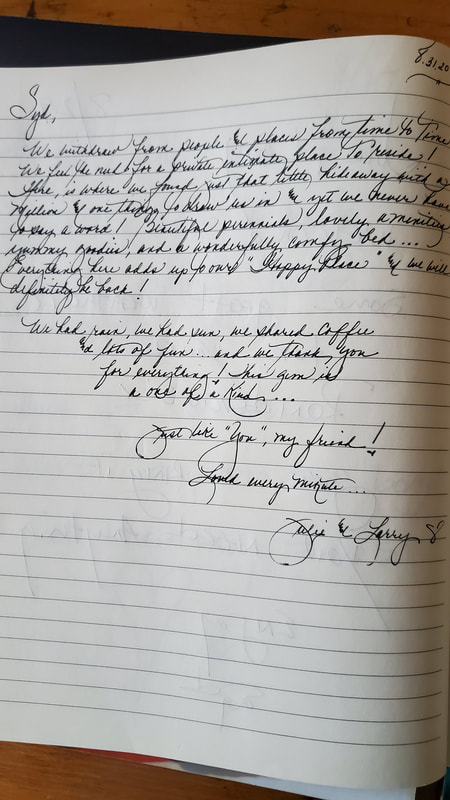 8.31.20
Syd,
We withdraw from people & places from time to time
We feel the need for a private intimate place to reside!
Here, is where we found just that little hideaway with a
million & one things to draw us in & yet we never have
to say a word! Beautiful perennials, lovely amenities
yummy goodies, and a wonderfully comfy bed...
Everything here adds up to our "Happy Place" & we will
definitely be back!
We had rain, we had sun, we shared coffee
& lots of fun... and we thank you
for everything! This gem is
a one of a kind...
Just like "You", my friend!
Loved every minute...
& Larry